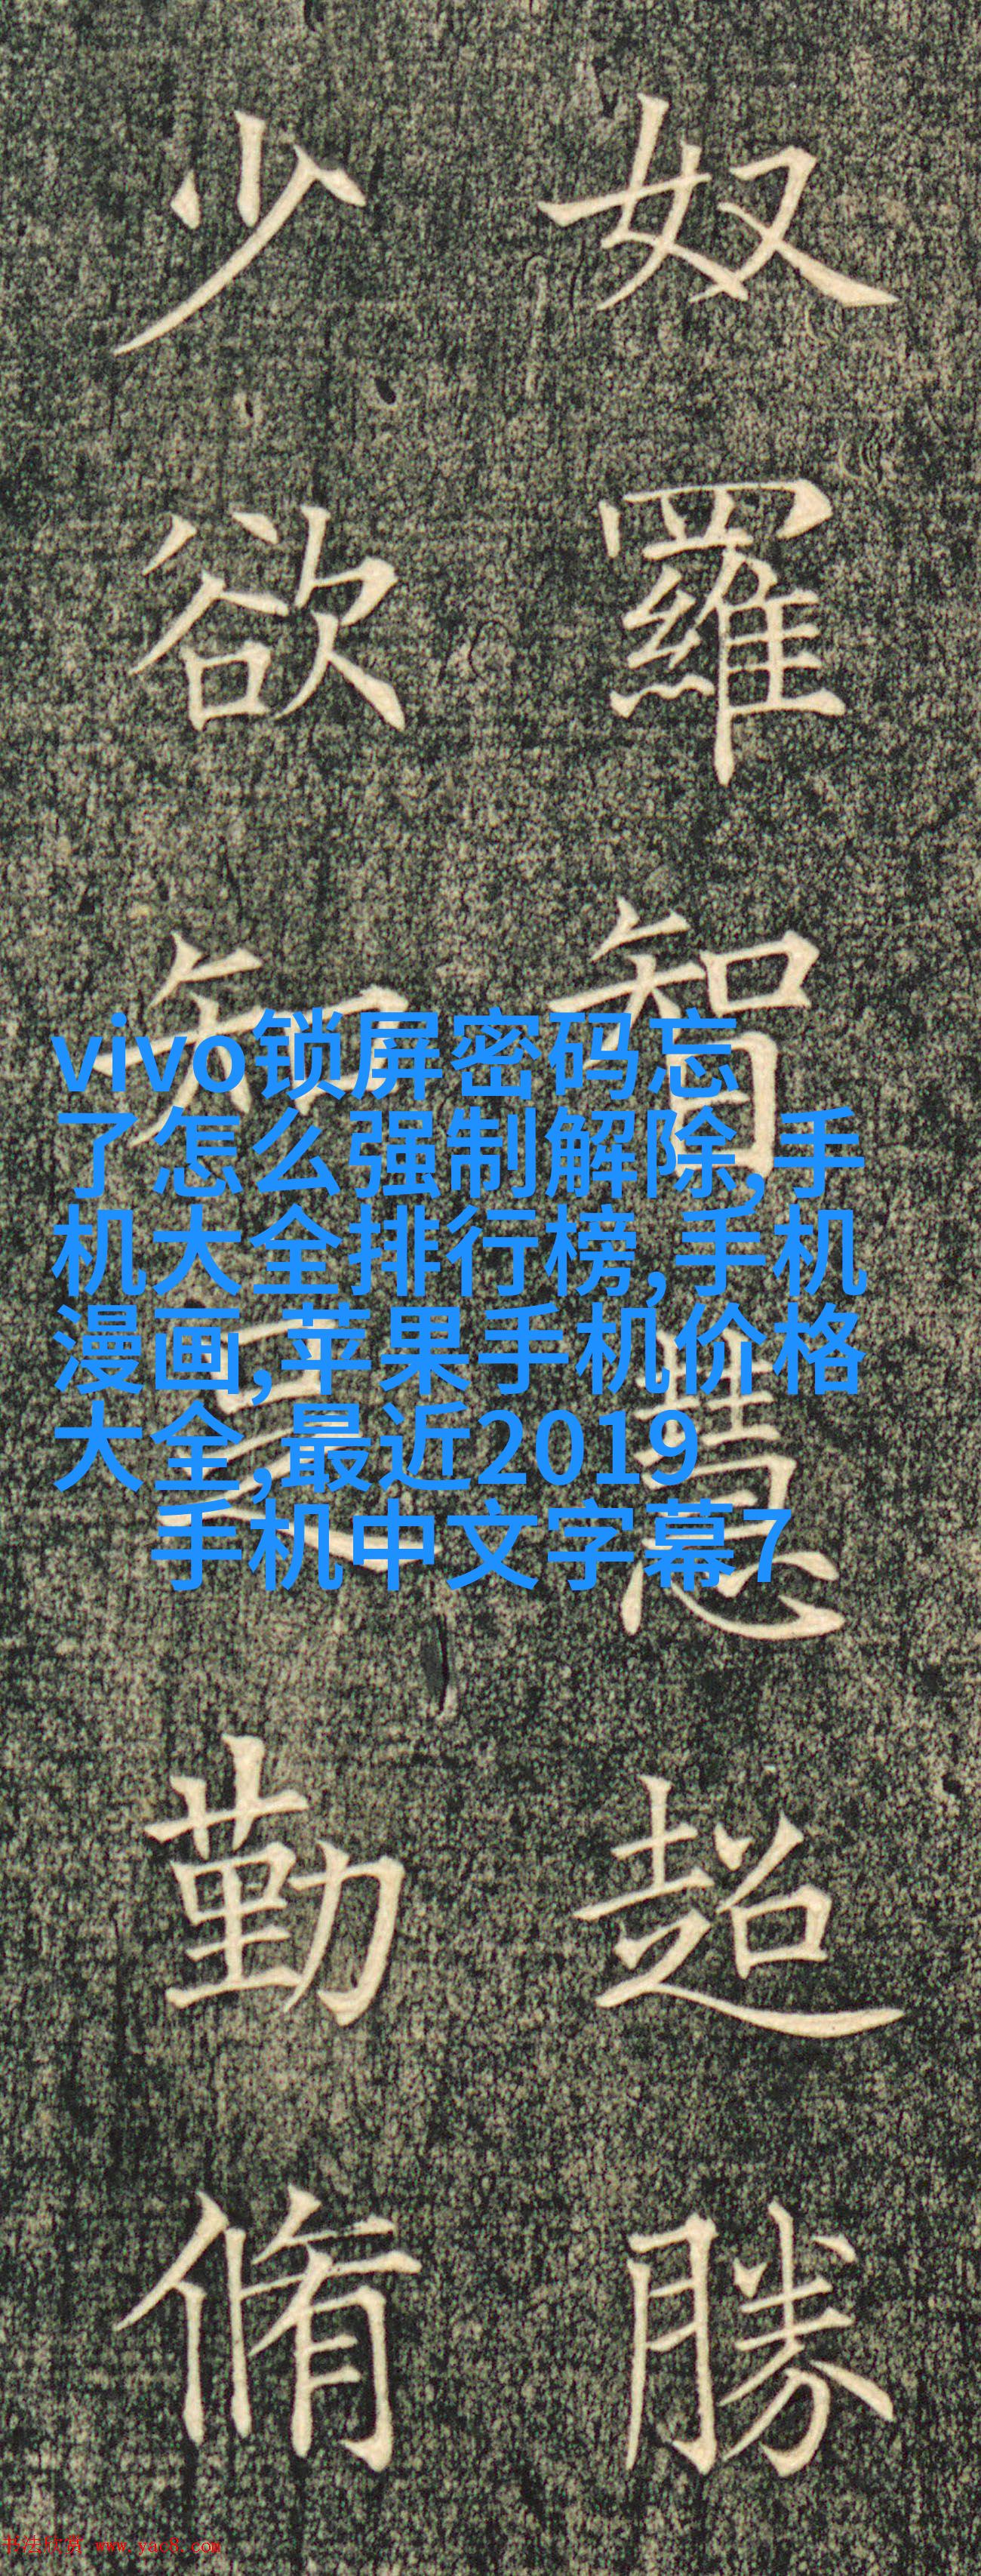 奴羅智慧超勝
少欲知足勤脩
vivo锁屏密码忘
了怎么强制解除,手
机大全排行榜,手机
漫画,苹果手机价格
大全,最近2019
手机中文字幕7
书法欣赏 www.yac8.com